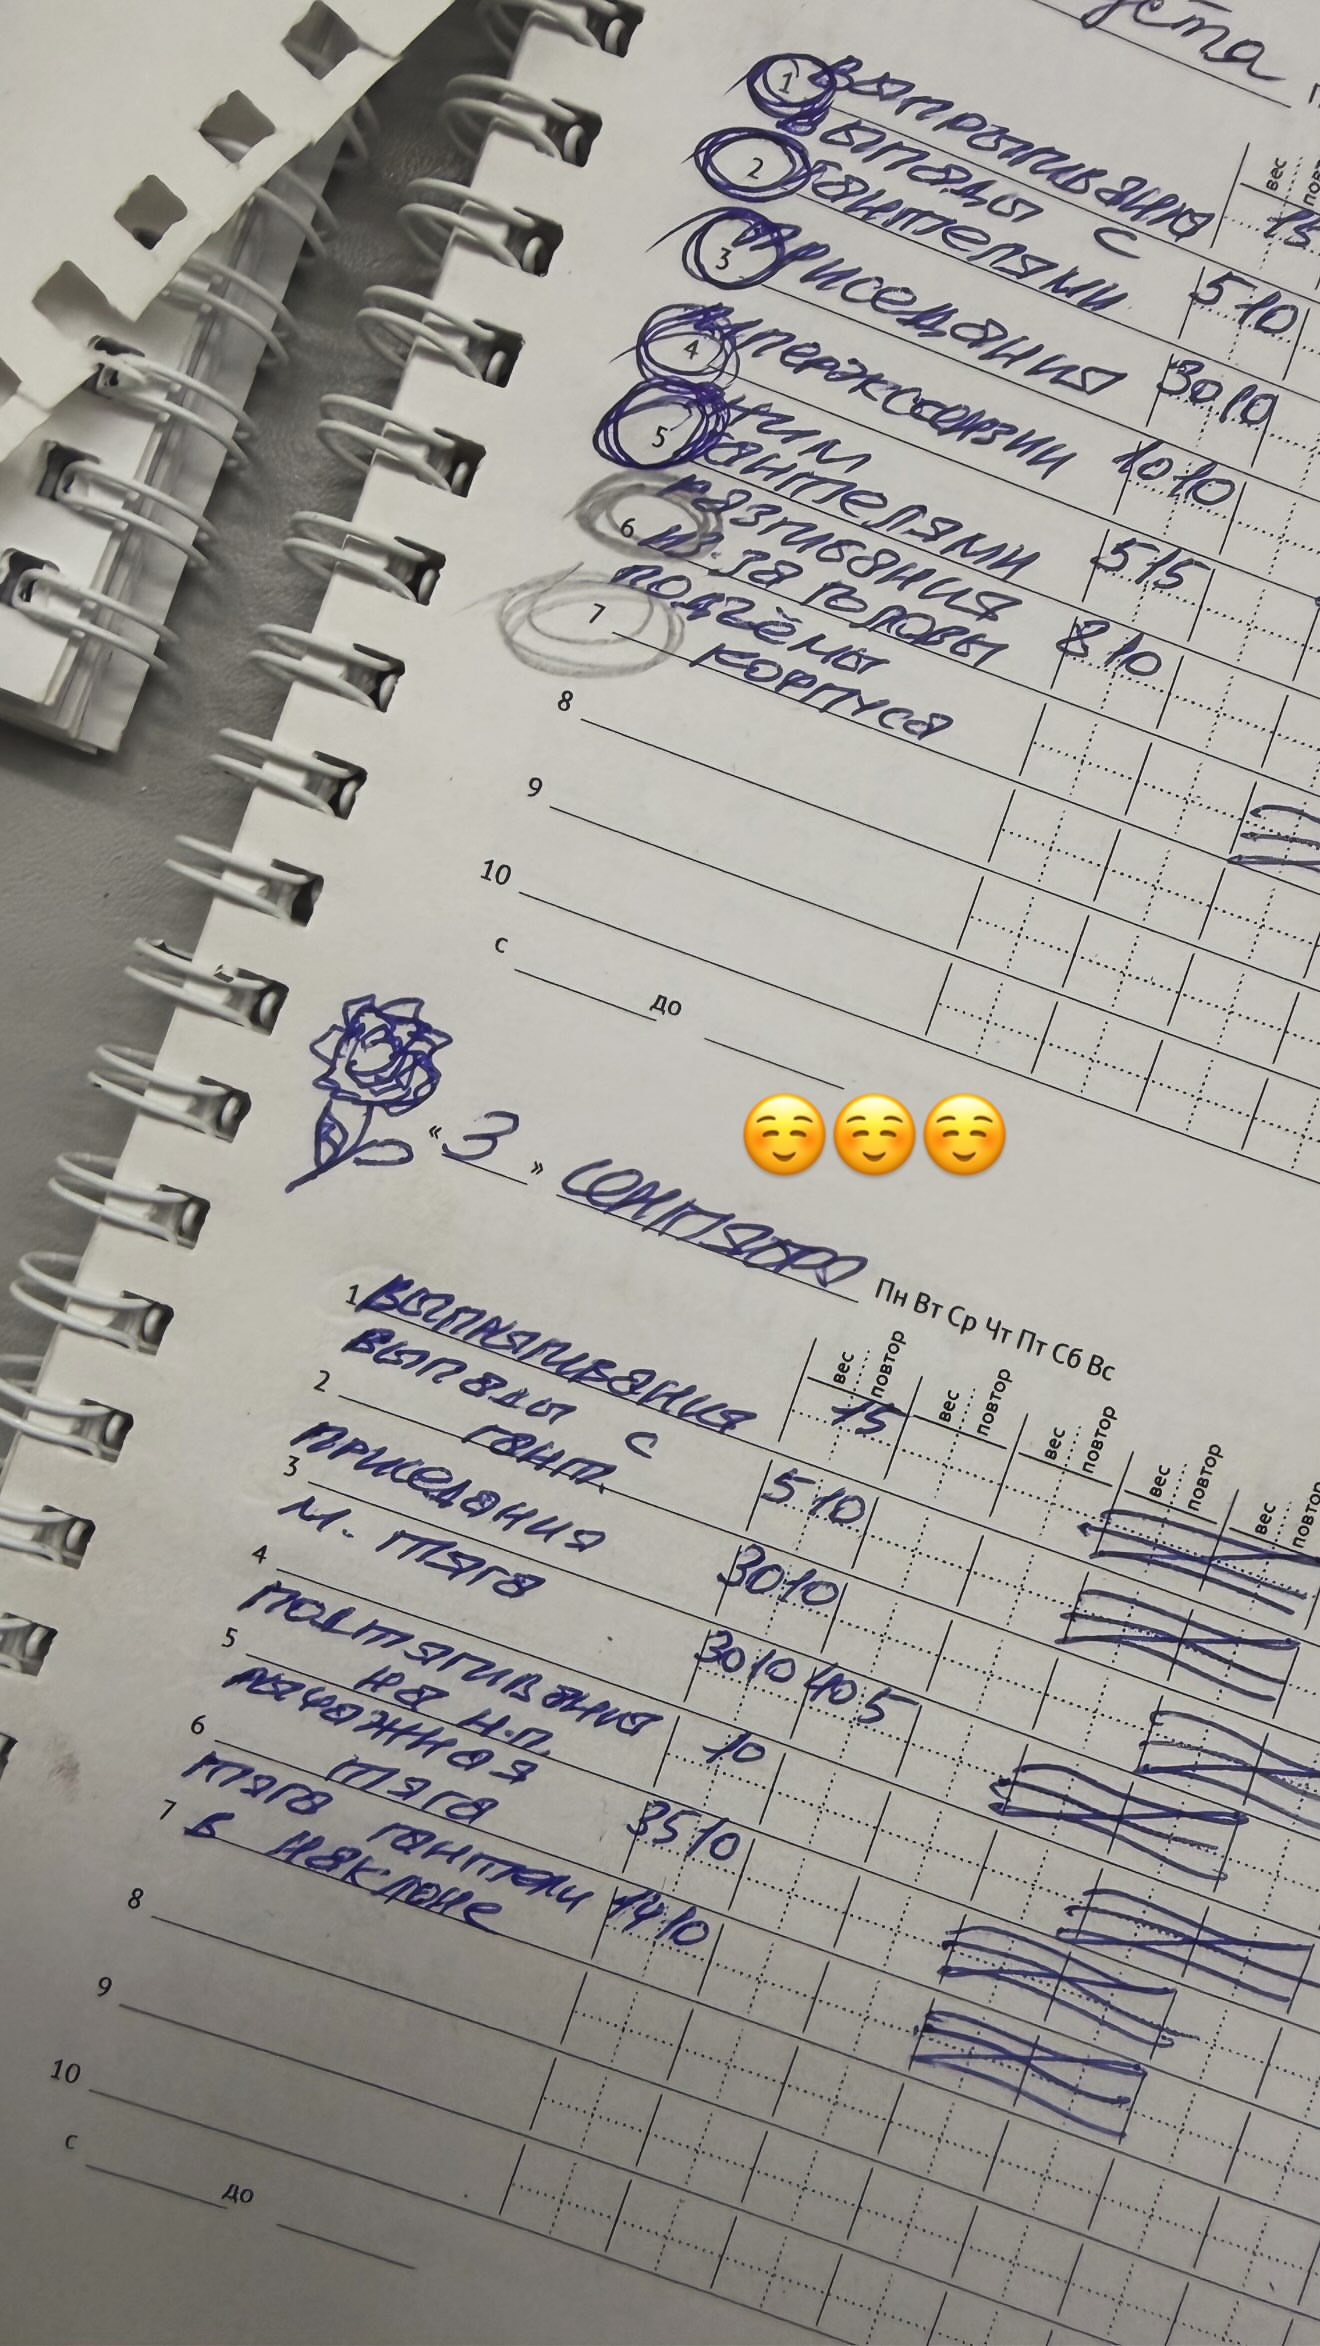 уста
П
вес
повт
1 Выпрыгивания 15
2 Выпады с
гантелями 5 10
3 Приседания 30 10
4 гиперэкстензии 10 10
5 жим
гантелями 5 15
6 разгибания
из-за головы 8 10
7 подъёмы
корпуса
8
9
10
с до
« 3 » сентября Пн Вт Ср Чт Пт Сб Вс
вес повтор вес повтор вес повтор вес повтор вес повтор
1 Выпрыгивания 15
2 Выпады с
гант. 5 10
3 приседания 30 10
4 м. тяга 30 10 40 5
5 подтягивания
на н.п. 10
6 рычажная
тяга 35 10
7 тяга гантели
в наклоне 14 10
8
9
10
с до